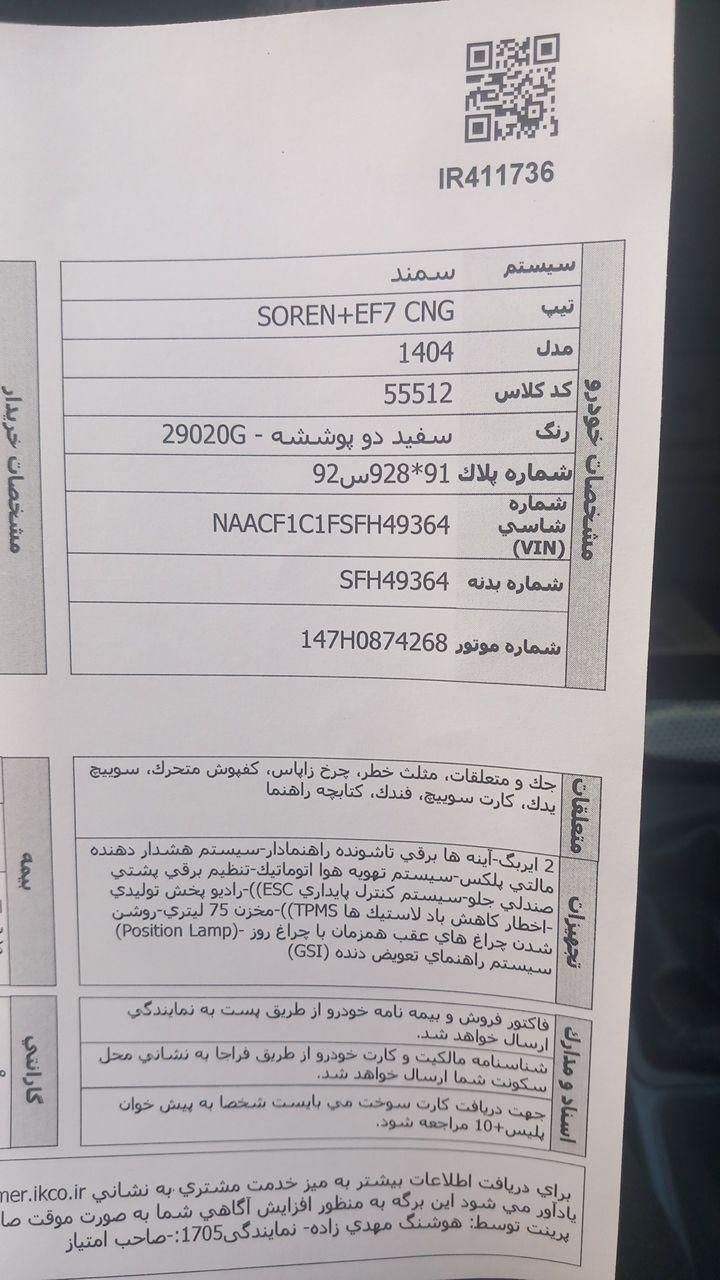 IR411736
مشخصات خودرو
سيستم سمند
تيپ SOREN+EF7 CNG
مدل 1404
كد كلاس 55512
رنگ سفيد دو پوششه - 29020G
شماره پلاك 91*928س92
شماره
شاسي NAACF1C1FSFH49364
(VIN)
شماره بدنه SFH49364
شماره موتور 147H0874268
مشخصات خريدار
متعلقات
جك و متعلقات، مثلث خطر، چرخ زاپاس، كفپوش متحرك، سوييچ
يدك، كارت سوييچ، فندك، كتابچه راهنما
تجهيزات
2 ايربگ-آينه ها برقي تاشونده راهنمادار-سيستم هشدار دهنده
مالتي پلكس-سيستم تهويه هوا اتوماتيك-تنظيم برقي پشتي
صندلي جلو-سيستم كنترل پايداري ESC))-راديو پخش توليدي
-اخطار كاهش باد لاستيك ها TPMS))-مخزن 75 ليتري-روشن
شدن چراغ هاي عقب همزمان با چراغ روز -(Position Lamp)
سيستم راهنماي تعويض دنده (GSI)
بيمه
اسناد و مدارك
فاكتور فروش و بيمه نامه خودرو از طريق پست به نمايندگي
ارسال خواهد شد.
شناسنامه مالكيت و كارت خودرو از طريق فراجا به نشاني محل
سكونت شما ارسال خواهد شد.
جهت دريافت كارت سوخت مي بايست شخصا به پيش خوان
پليس+10 مراجعه شود.
گارانتي
براي دريافت اطلاعات بيشتر به ميز خدمت مشتري به نشاني mer.ikco.ir
يادآور مي شود اين برگه به منظور افزايش آگاهي شما به صورت موقت صا
پرينت توسط: هوشنگ مهدي زاده- نمايندگی1705:-صاحب امتياز